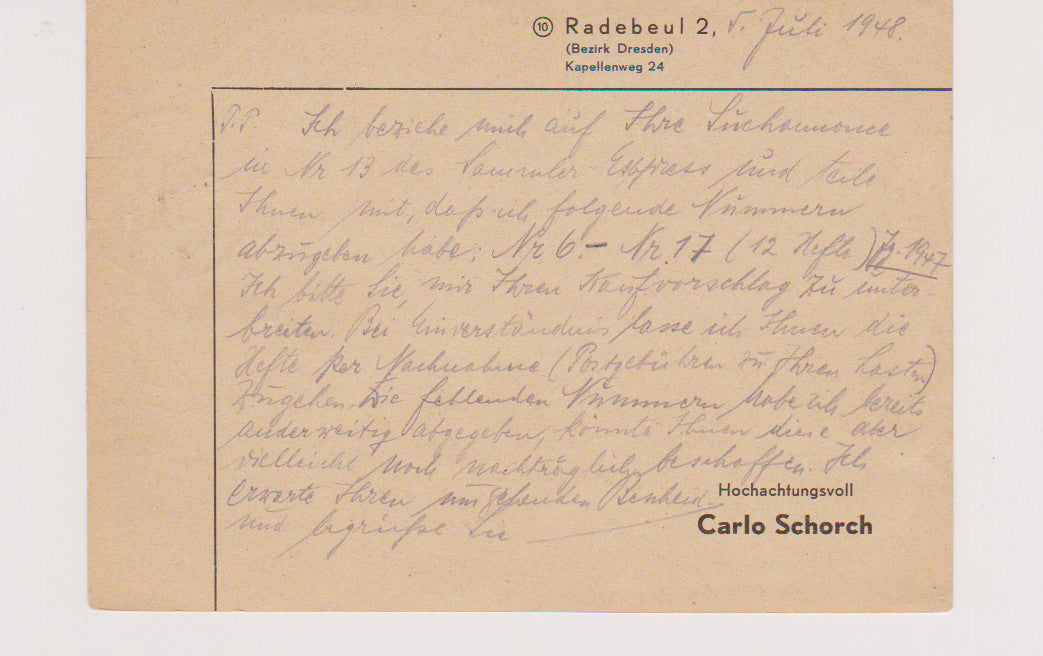 ⑩ Radebeul 2, 5. Juli 1948.
(Bezirk Dresden)
Kapellenweg 24
P.P. Ich beziehe mich auf Ihre Suchannonce
in Nr 13 des Sammler-Express und teile
Ihnen mit, daß ich folgende Nummern
abzugeben habe: Nr 6.- Nr. 17 (12 Hefte) Jg. 1947
Ich bitte Sie, mir Ihren Kaufvorschlag zu unter-
breiten. Bei Einverständnis lasse ich Ihnen die
Hefte per Nachnahme (Postgebühren zu Ihren Lasten)
zugehen. Die fehlenden Nummern habe ich bereits
anderweitig abgegeben, könnte Ihnen diese aber
vielleicht noch nachträglich beschaffen. Ich
erwarte Ihren umgehenden Bescheid
und begrüße Sie
Hochachtungsvoll
Carlo Schorch